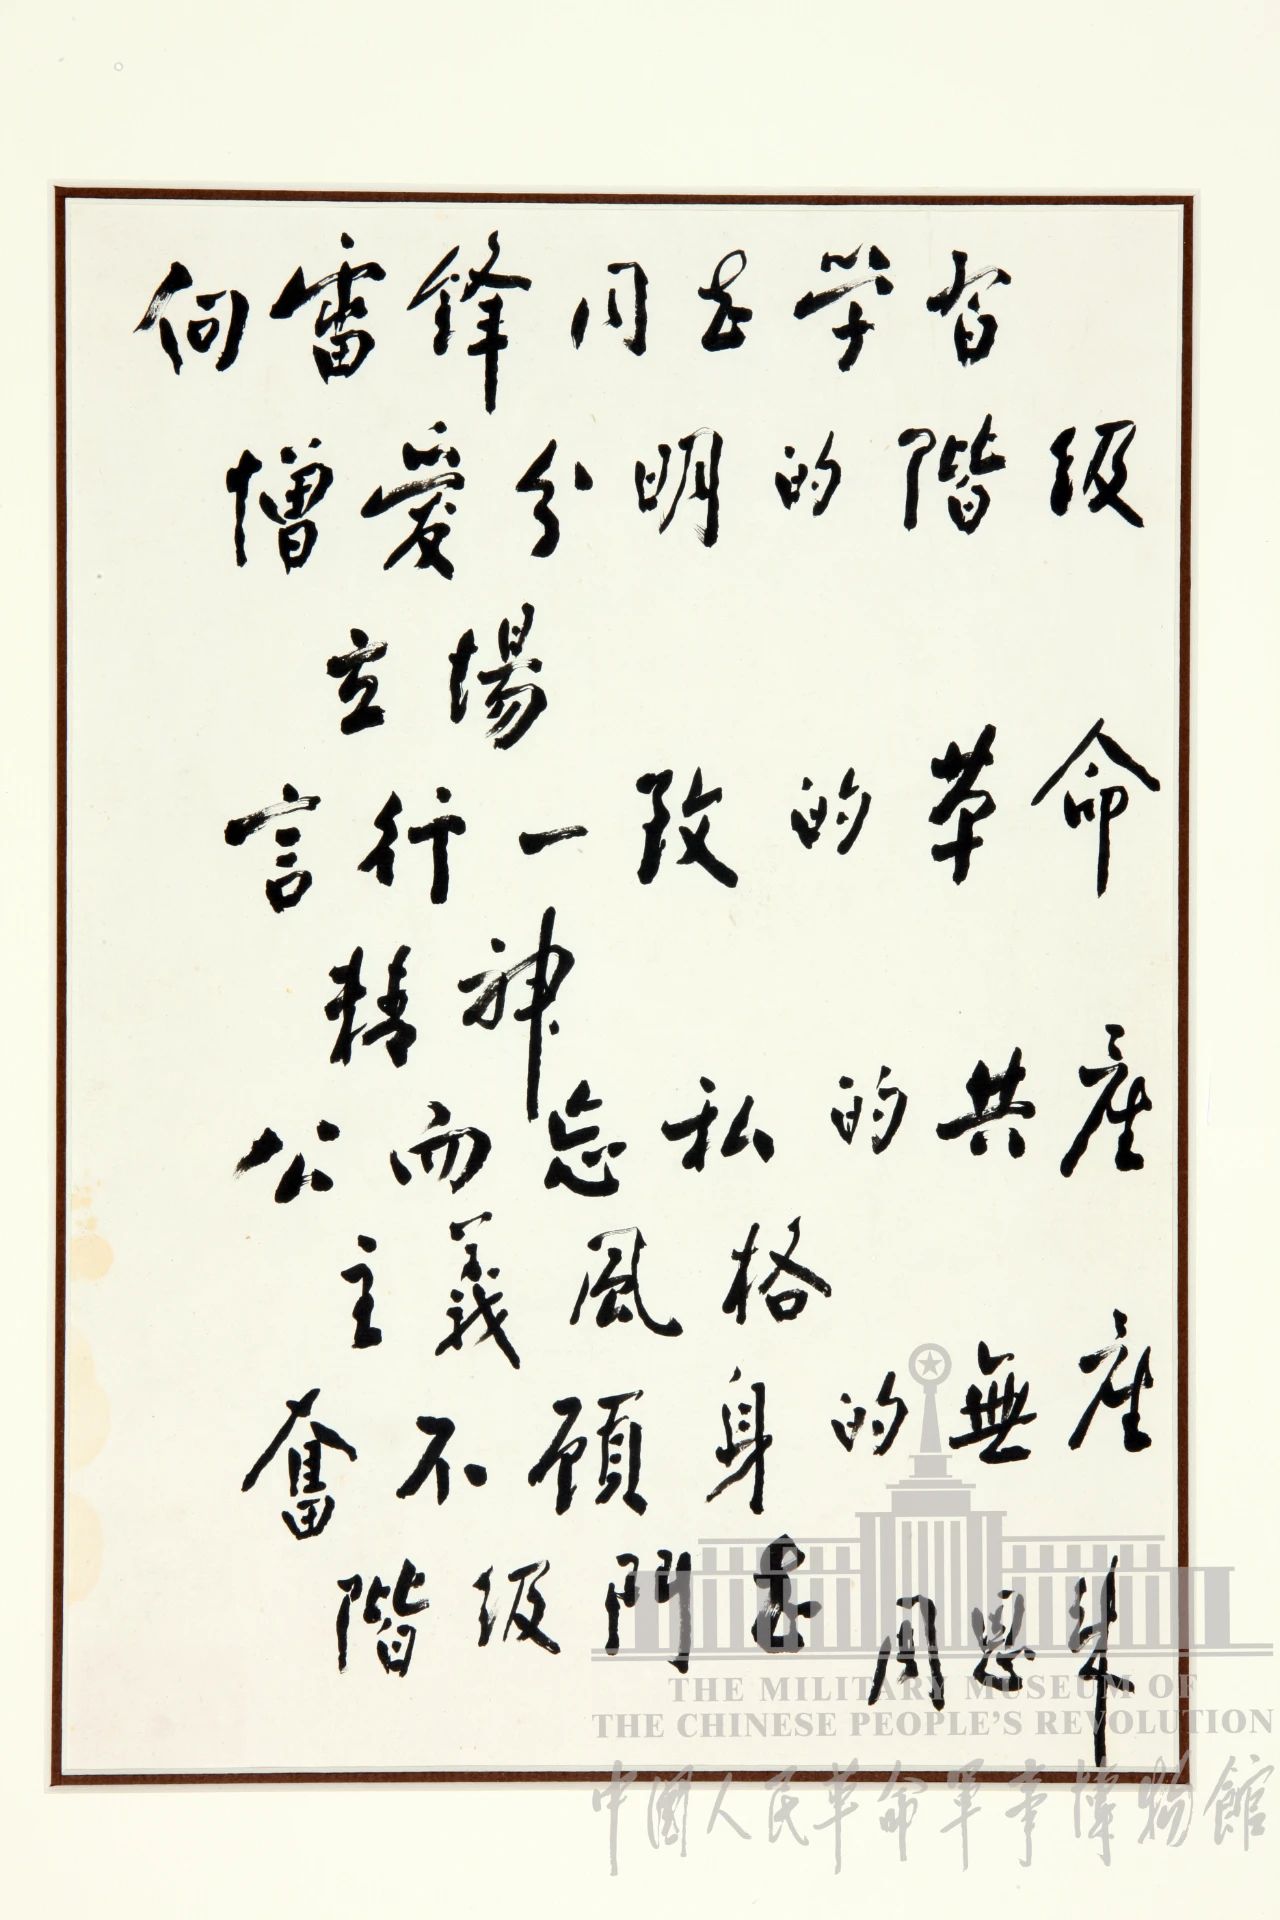 向雷锋同志学習
憎愛分明的階级
立場
言行一致的革命
精神
公而忘私的共産
主義風格
奮不顧身的無産
階级鬥志
周恩来
THE MILITARY MUSEUM OF
THE CHINESE PEOPLE'S REVOLUTION
中國人民革命軍事博物館